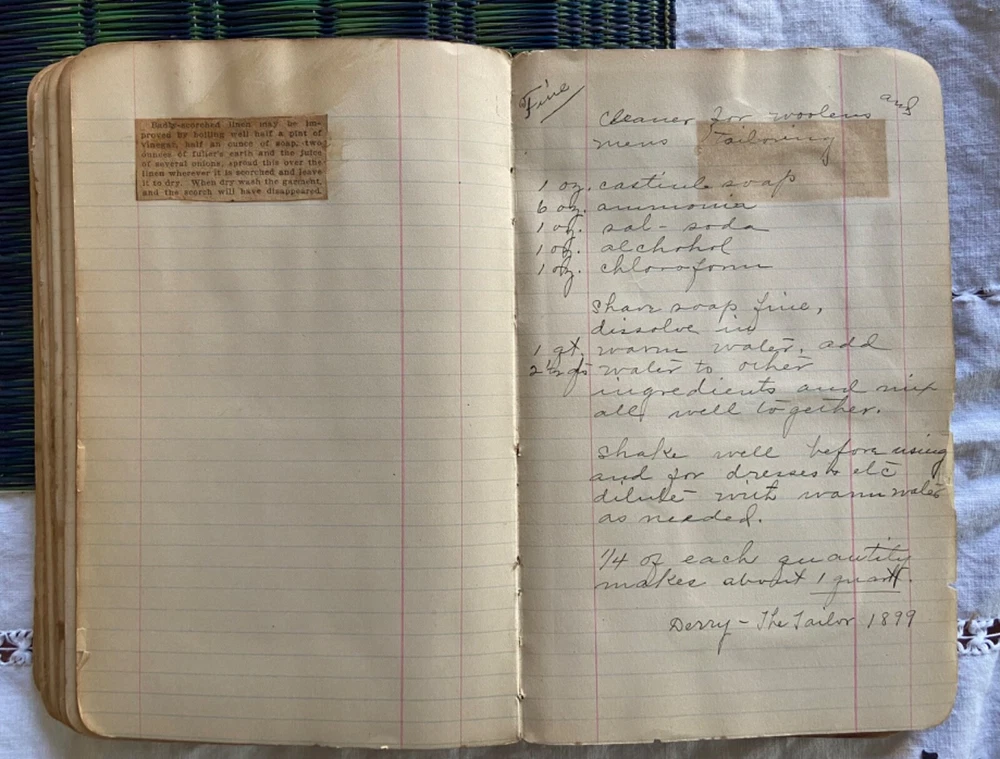 Badly-scorched linen may be im-
proved by boiling well half a pint of
vinegar, half an ounce of soap, two
ounces of fuller's earth and the juice
of several onions, spread this over the
linen wherever it is scorched and leave
it to dry. When dry wash the garment,
and the scorch will have disappeared.
Fine
Cleaner for woolens and
mens Tailoring
1 oz. castile soap
6 oz. ammonia
1 oz. sal-soda
1 oz. alchohol
1 oz. chloroform
Shave soap fine,
dissolve in
1 qt. warm water, add
2 1/2 water to other
ingredients and mix
all well together.
Shake well before using
and for dresses etc
dilute with warm water
as needed.
1/4 of each quantity
makes about 1 quart.
Derry - The Tailor 1899